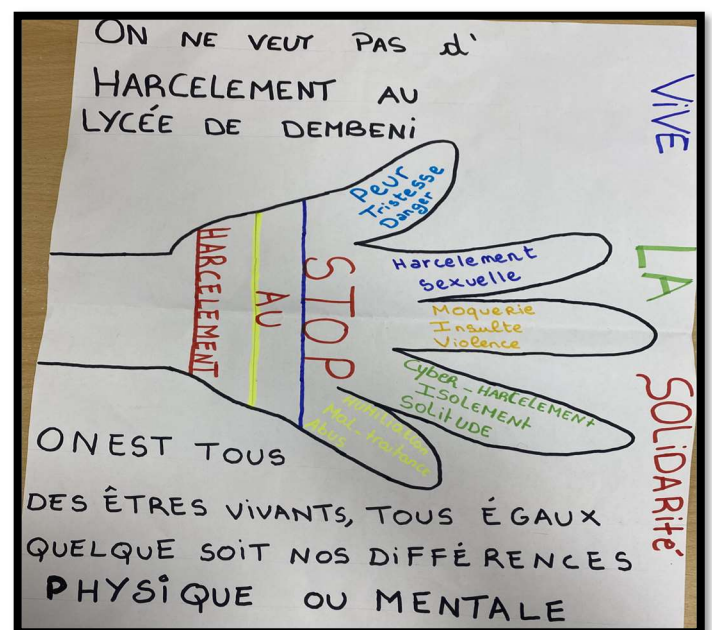 ON NE VEUT PAS d'
HARCELEMENT AU
LYCÉE DE DEMBENi
ViVE
LA
SOLiDARité
Peur
Tristesse
Danger
Harcelement
sexuelle
Moquerie
Insulte
Violence
Cyber-HARCELEMENT
ISOLEMENT
SOLitUDE
Humiliation
Mal-traitance
Abus
STOP
AU
HARCELEMENT
ON EST TOUS
DES ÊTRES ViVANTS, TOUS ÉGAUX
QUELQUE SOIT NOS DiFFÉRENCES
PHYSiQUE OU MENTALE